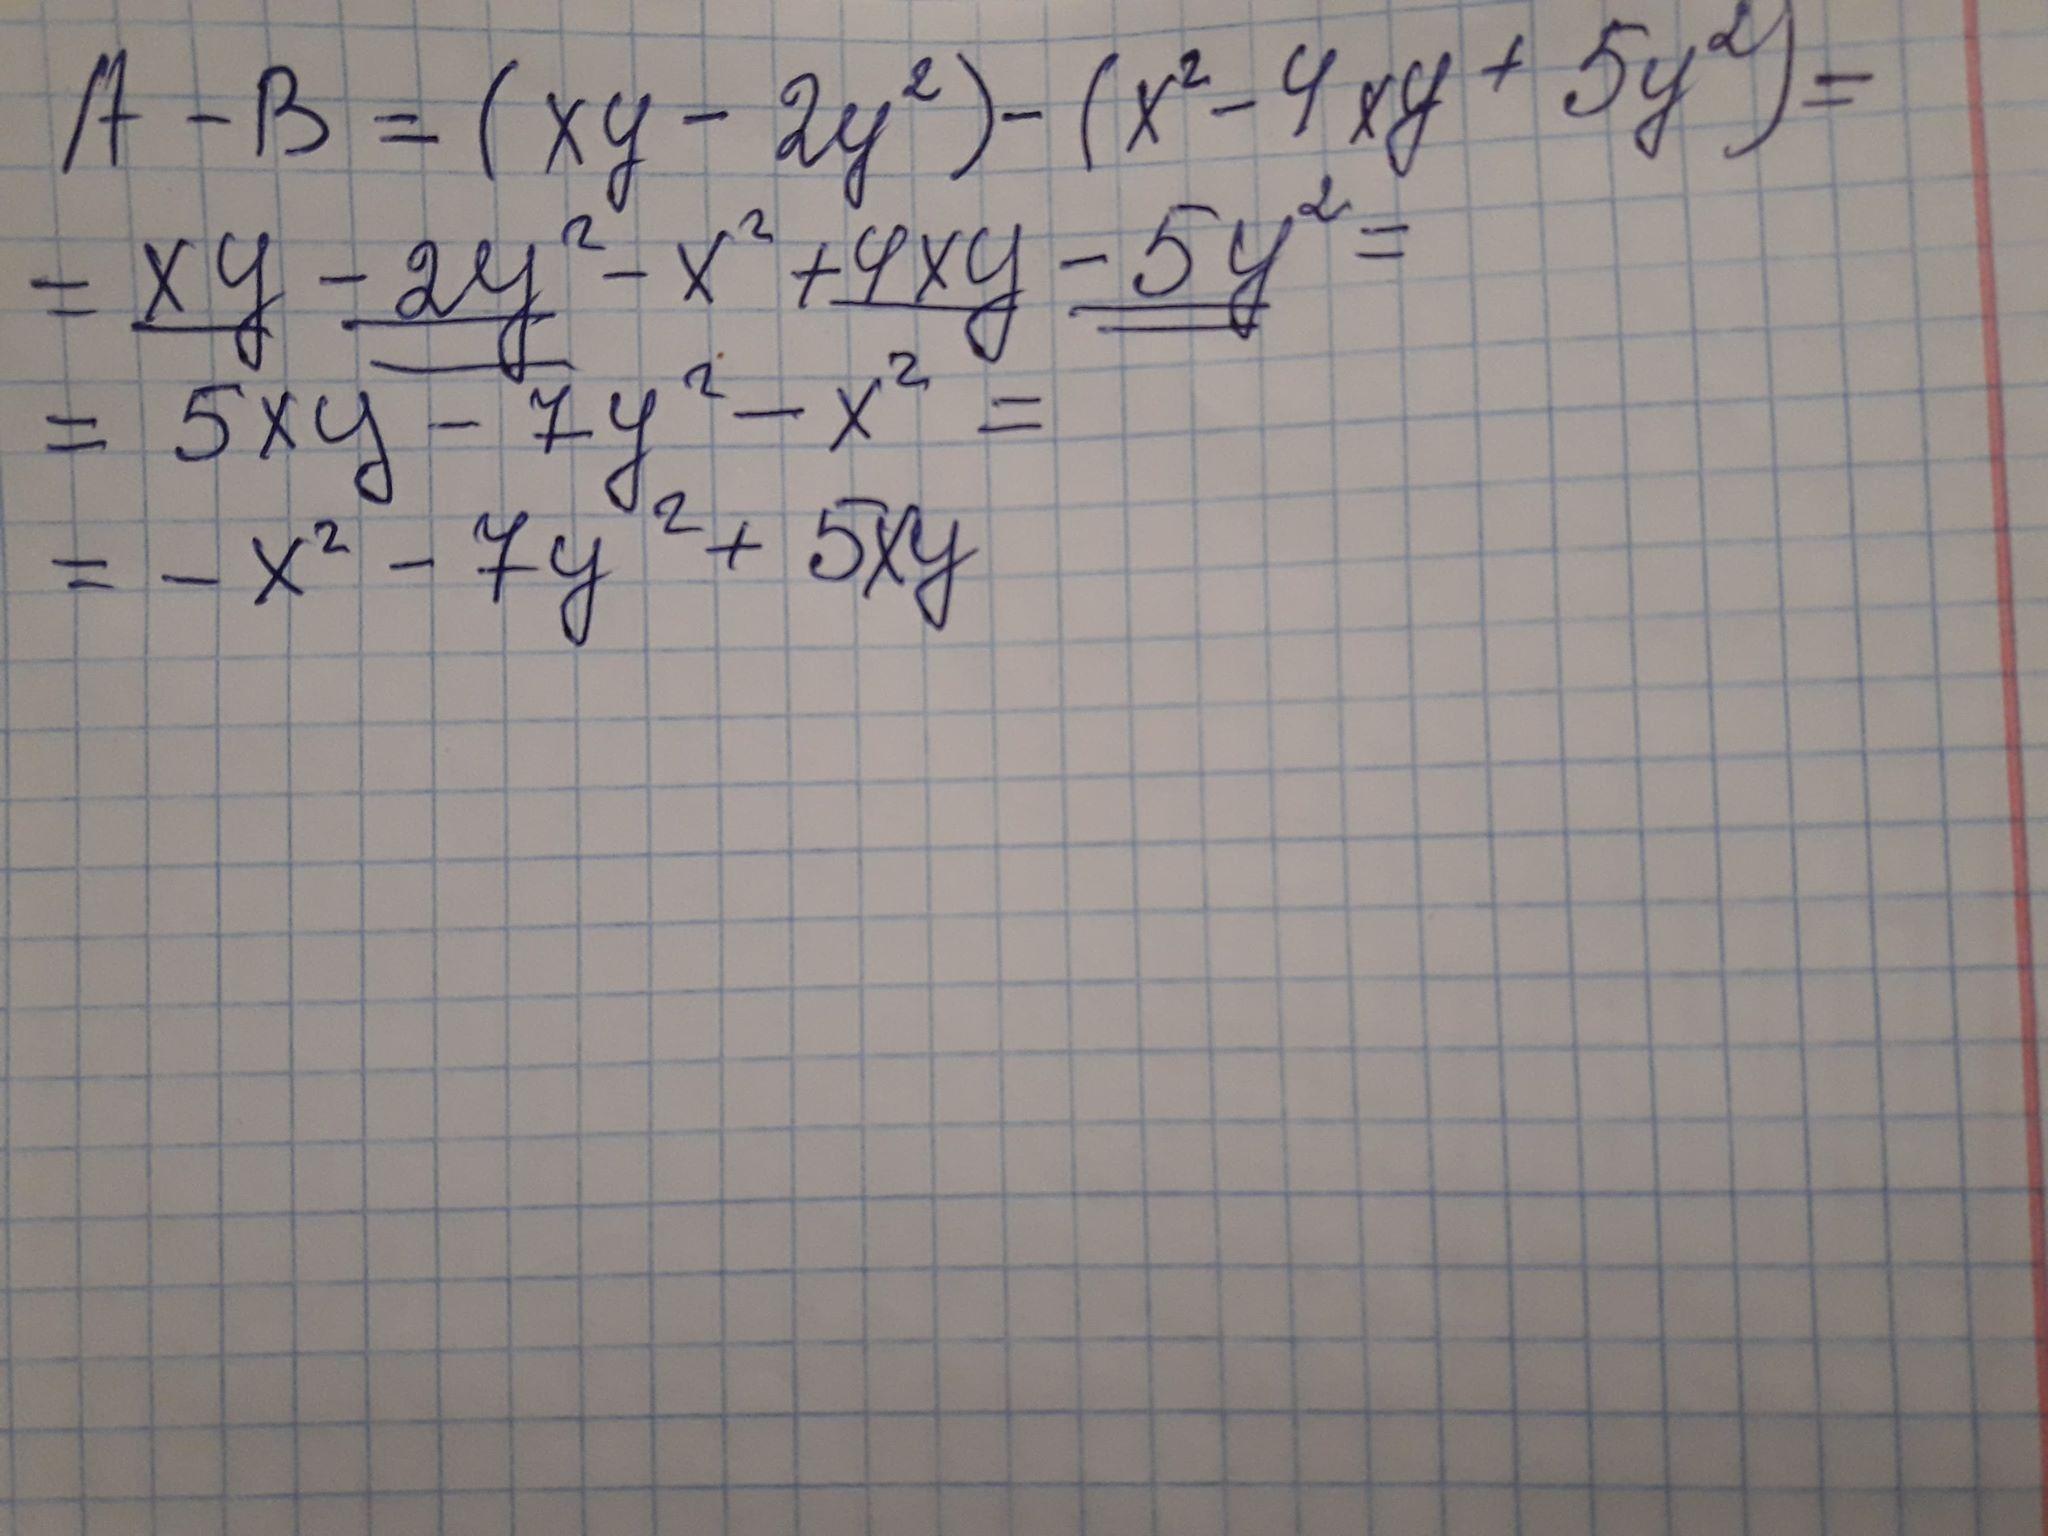 A - B = (xy - 2y²) - (x² - 4xy + 5y²) =
= xy - 2y² - x² + 4xy - 5y² =
= 5xy - 7y² - x² =
= - x² - 7y² + 5xy